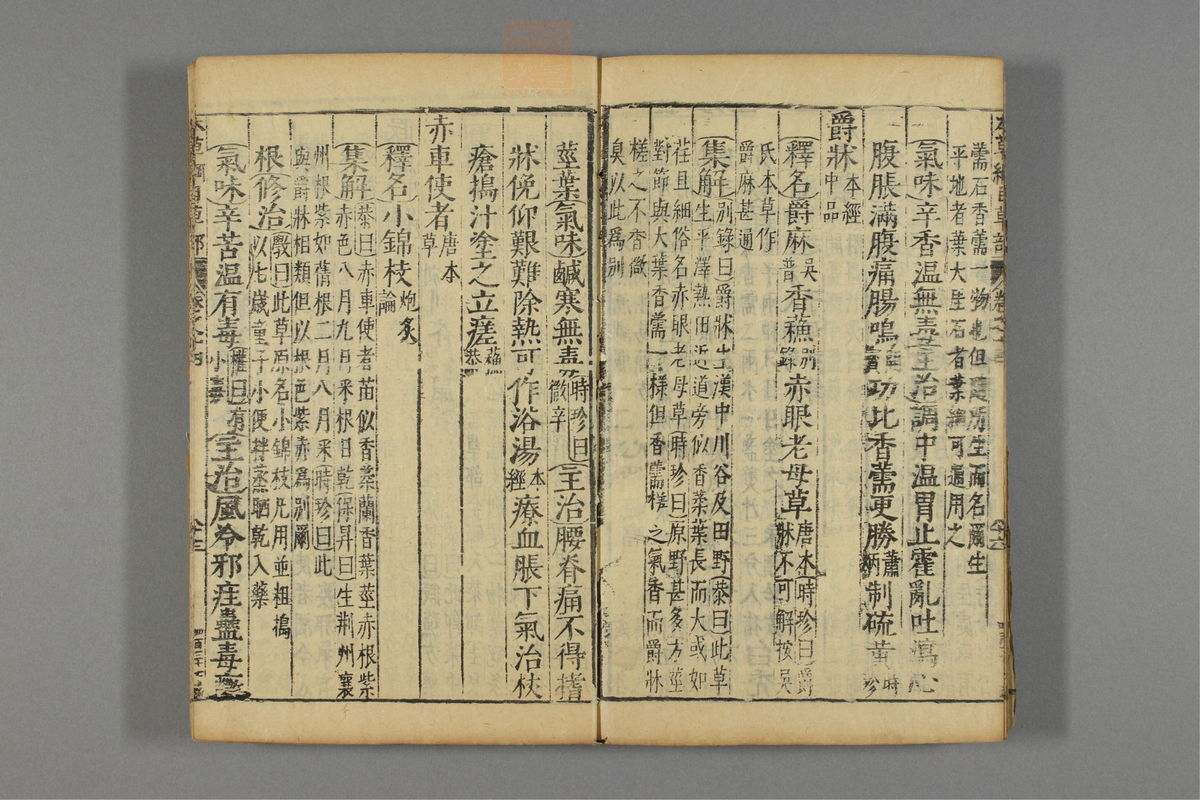 薷石香薷一物也但隨所生而名爾生
平地者葉大生石者葉細可通用之
氣味辛香溫無毒主治調中溫胃止霍亂吐瀉心
腹脹滿腹痛腸鳴功比香薷更勝蕭炳制硫黃時珍
爵牀本經中品
釋名爵麻吳普香蘇別錄赤眼老母草唐本時珍曰爵牀不可解按吳
氏本草作
爵麻甚通
集解別錄曰爵牀生漢中川谷及田野恭曰此草
生平澤熟田近道旁似香葇葉長而大或如
荏且細俗名赤眼老母草時珍曰原野甚多方莖
對節與大葉香薷一樣但香薷搓之氣香而爵牀
搓之不香微
臭以此爲別
莖葉氣味鹹寒無毒時珍曰微辛主治腰脊痛不得着
牀俛仰艱難除熱可作浴湯本經療血脹下氣治杖
瘡搗汁塗之立瘥蘇恭
赤車使者唐本草
釋名小錦枝炮炙論
集解恭曰赤車使者苗似香葇蘭香葉莖赤根紫
赤色八月九月采根日乾保昇曰生荆州襄
州根紫如蒨根二月八月采時珍曰此
與爵牀相類但以根色紫赤爲別爾
根修治斅曰此草原名小錦枝凡用並粗搗
以七歲童子小便拌蒸晒乾入藥
氣味辛苦溫有毒權曰有小毒主治風冷邪疰蠱毒癥